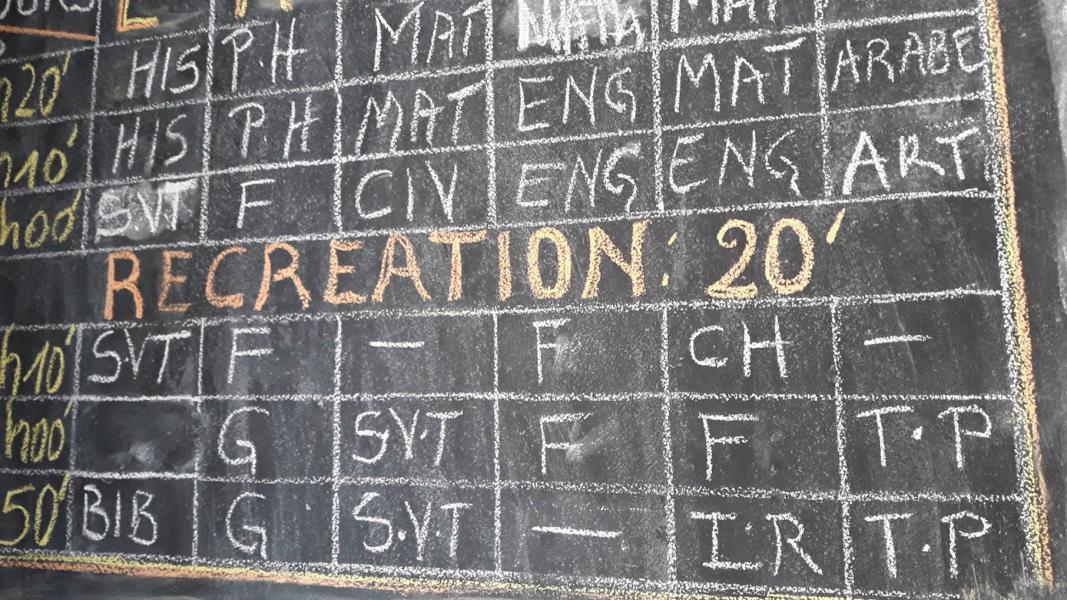 MAT MAT
h20' HIS P.H MAT ENG MAT ARABE
h10' HIS P.H MAT ENG ENG ART
h00' SVT F CIV
RECREATION: 20'
h10' SVT F — F CH —
h00' G S.V.T F F T.P
50' BIB G S.V.T — I.R T.P